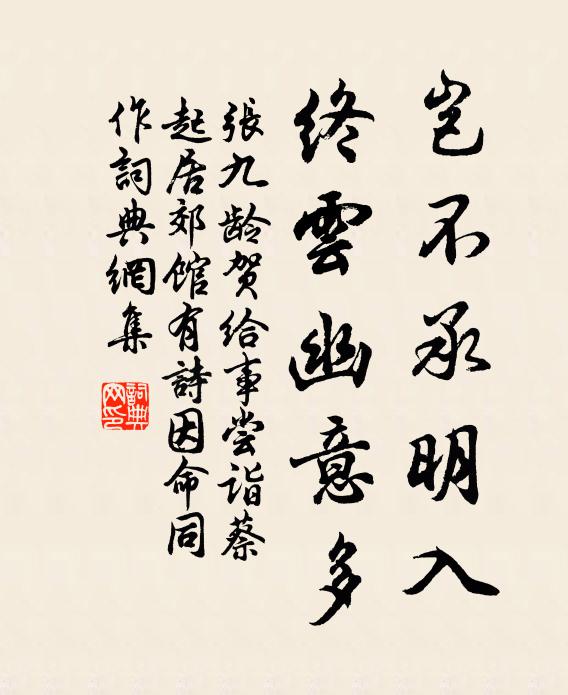 岂不承明入
终雲幽意多
張九龄贺给事尝诣蔡
起居郊馆有詩因命同
作詞典網集
詞典
网印